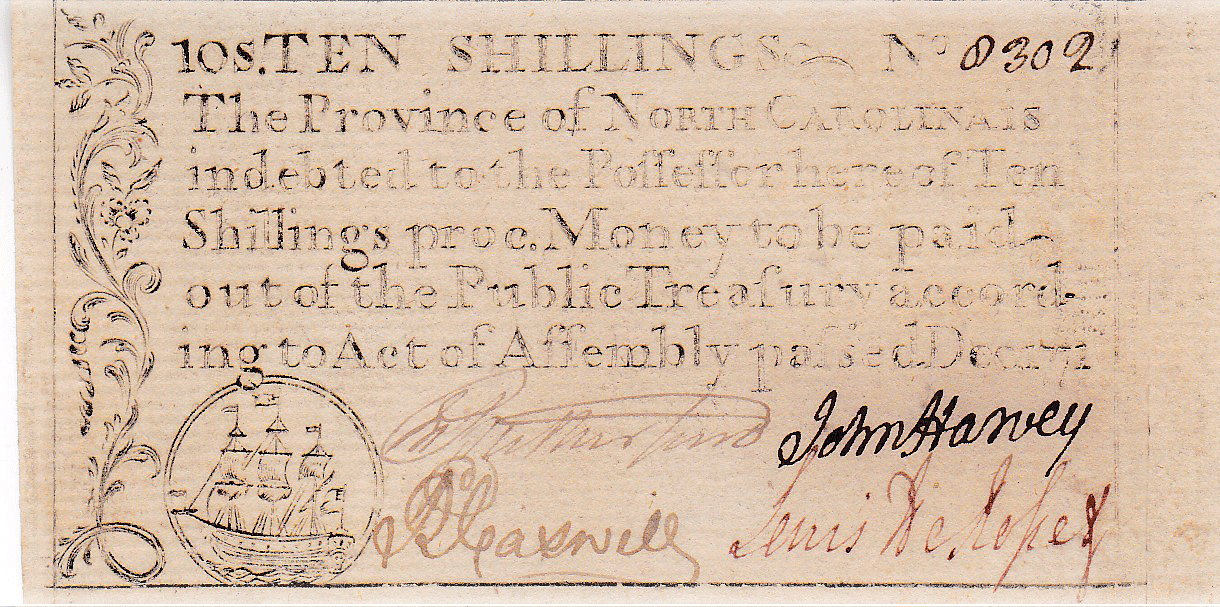 10S. TEN SHILLINGS No 8302
The Province of NORTH CAROLINA IS
indebted to the Poſſeſſor here of Ten
Shillings proc. Money to be paid
out of the Public Treaſury accord-
ing to Act of Aſſembly paſsed Decem
John Harvey
Lewis De Rosset